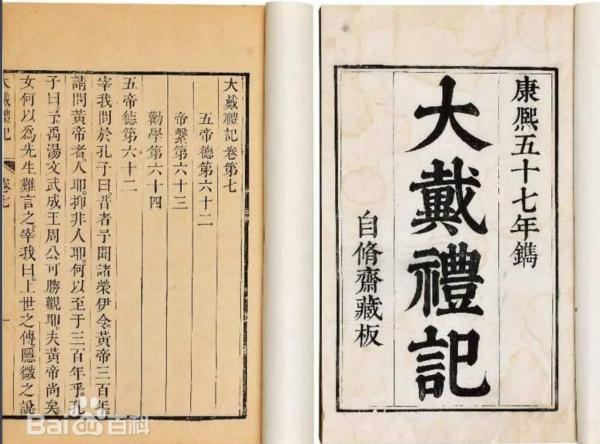 康熙五十七年鐫
大戴禮記
自脩齋藏板
大戴禮記卷第七
五帝德第六十二
帝繫第六十三
勸學第六十四
五帝德第六十二
宰我問於孔子曰昔者予聞諸榮伊令黃帝三百年
請問黃帝者人耶抑非人耶何以至于三百年乎孔
子曰予禹湯文武成王周公可勝觀耶夫黃帝尚矣
女何以為先生難言之宰我曰上世之傳隱微之說
大戴禮記
卷七
一
Bai百科